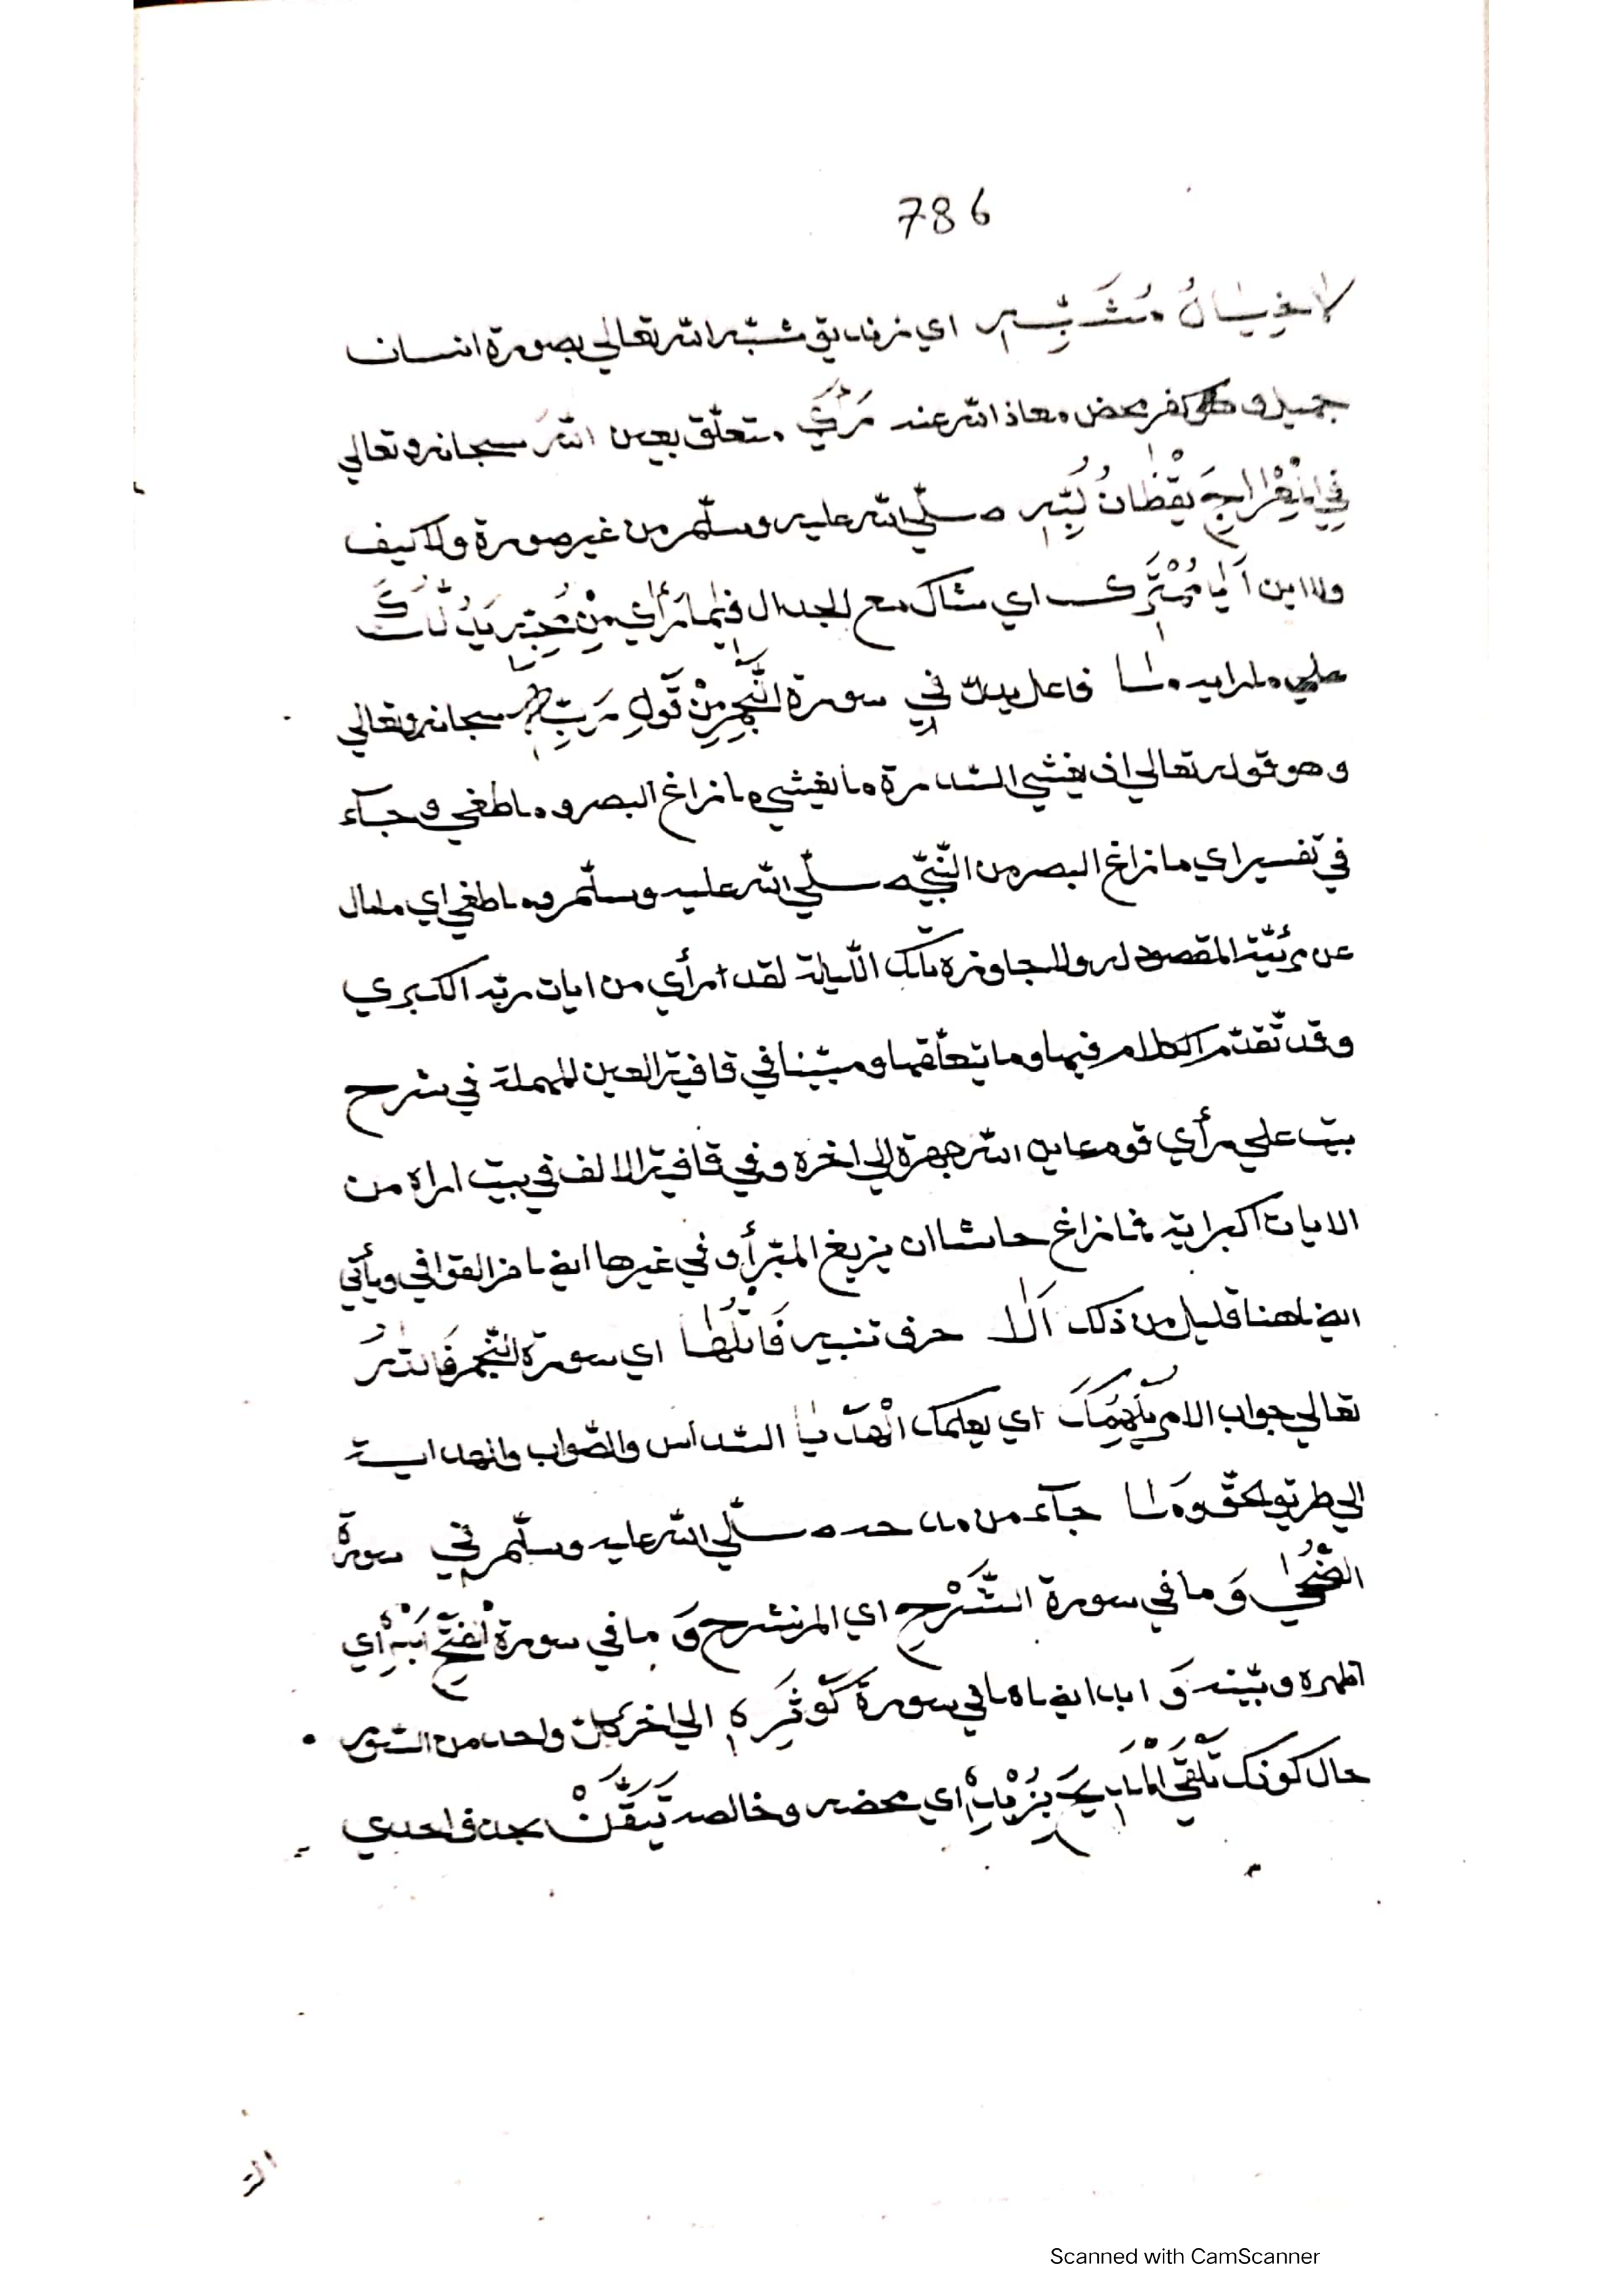 786
لا خيال مُشَبِّه اي زنديق شبّه الله تعالي بصورة انسان
جميل و كفر محض معاذ الله عند متعلّق بعين الله سبحانه وتعالي
فِي الْمِعْرَاجِ يَقْظَانُ لُبِّهِ صلّي الله عليه وسلّم من غير صورة ولا كيف
ولا اين اي شاك مع الجدال فِيمَا رَأَي مِنْ يَدُلُّكَ
علي فاعل يدلّ في سورة النَّجْمِ مِنْ قَوْلِ رَبِّهِ سبحانه وتعالي
وهو قوله تعالي اذ يغشي السّدرة ما يغشي ما زاغ البصر وما طغي و جآء
في تفسير اي ما زاغ البصر من النّبيّ صلّي الله عليه وسلّم وما طغي اي ما مال
عن رئيّة المقصود له ولا جاوزه تلك اللّيلة لقد رأي من ايات ربّه الكبري
وقد تقدّم الكلام فيها وما يتعلّقها ومبيّنا في قافية العين المهملة في شرح
بيت علي رأي قوم عاين الله جهرة الي اخره وفي قافية الالف في بيت اراه من
الايات اكبر اية فما زاغ حاشا ان يزيغ المبرّأ و في غيرها ايضا من القوافي ويأتي
ايضا هنا قليل من ذلك اَلَا حرف تنبيه فَاتْلُهَا اي سورة النّجم فَاللهُ
تعالي جواب الامر يُلْهِمُكَ اي يعلمك الْهُدَيٰ السّداس والصّواب والهداية
الي طريق الحقّ وَمَا جآء من مدحه صلّي الله عليه وسلّم في سورة
الضُّحَيٰ وَ ما في سورة الشَّرْحِ اي الم نشرح وَ ما في سورة الْفَتْحِ اي
اظهره وبيّنه وَ ايضا ما في سورة كَوْثَرِهِ الي اخر كلّ واحد من السّور
حال كونك تَلْقَي الْمَدِيحَ بِزُبْدِهِ اي محضه وخالصه تَيَقَّنْ